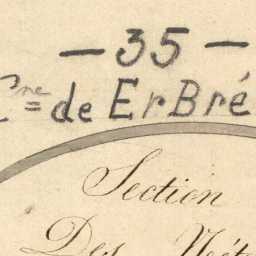 — 35 —
Cne = de Er Bré
Section
Des